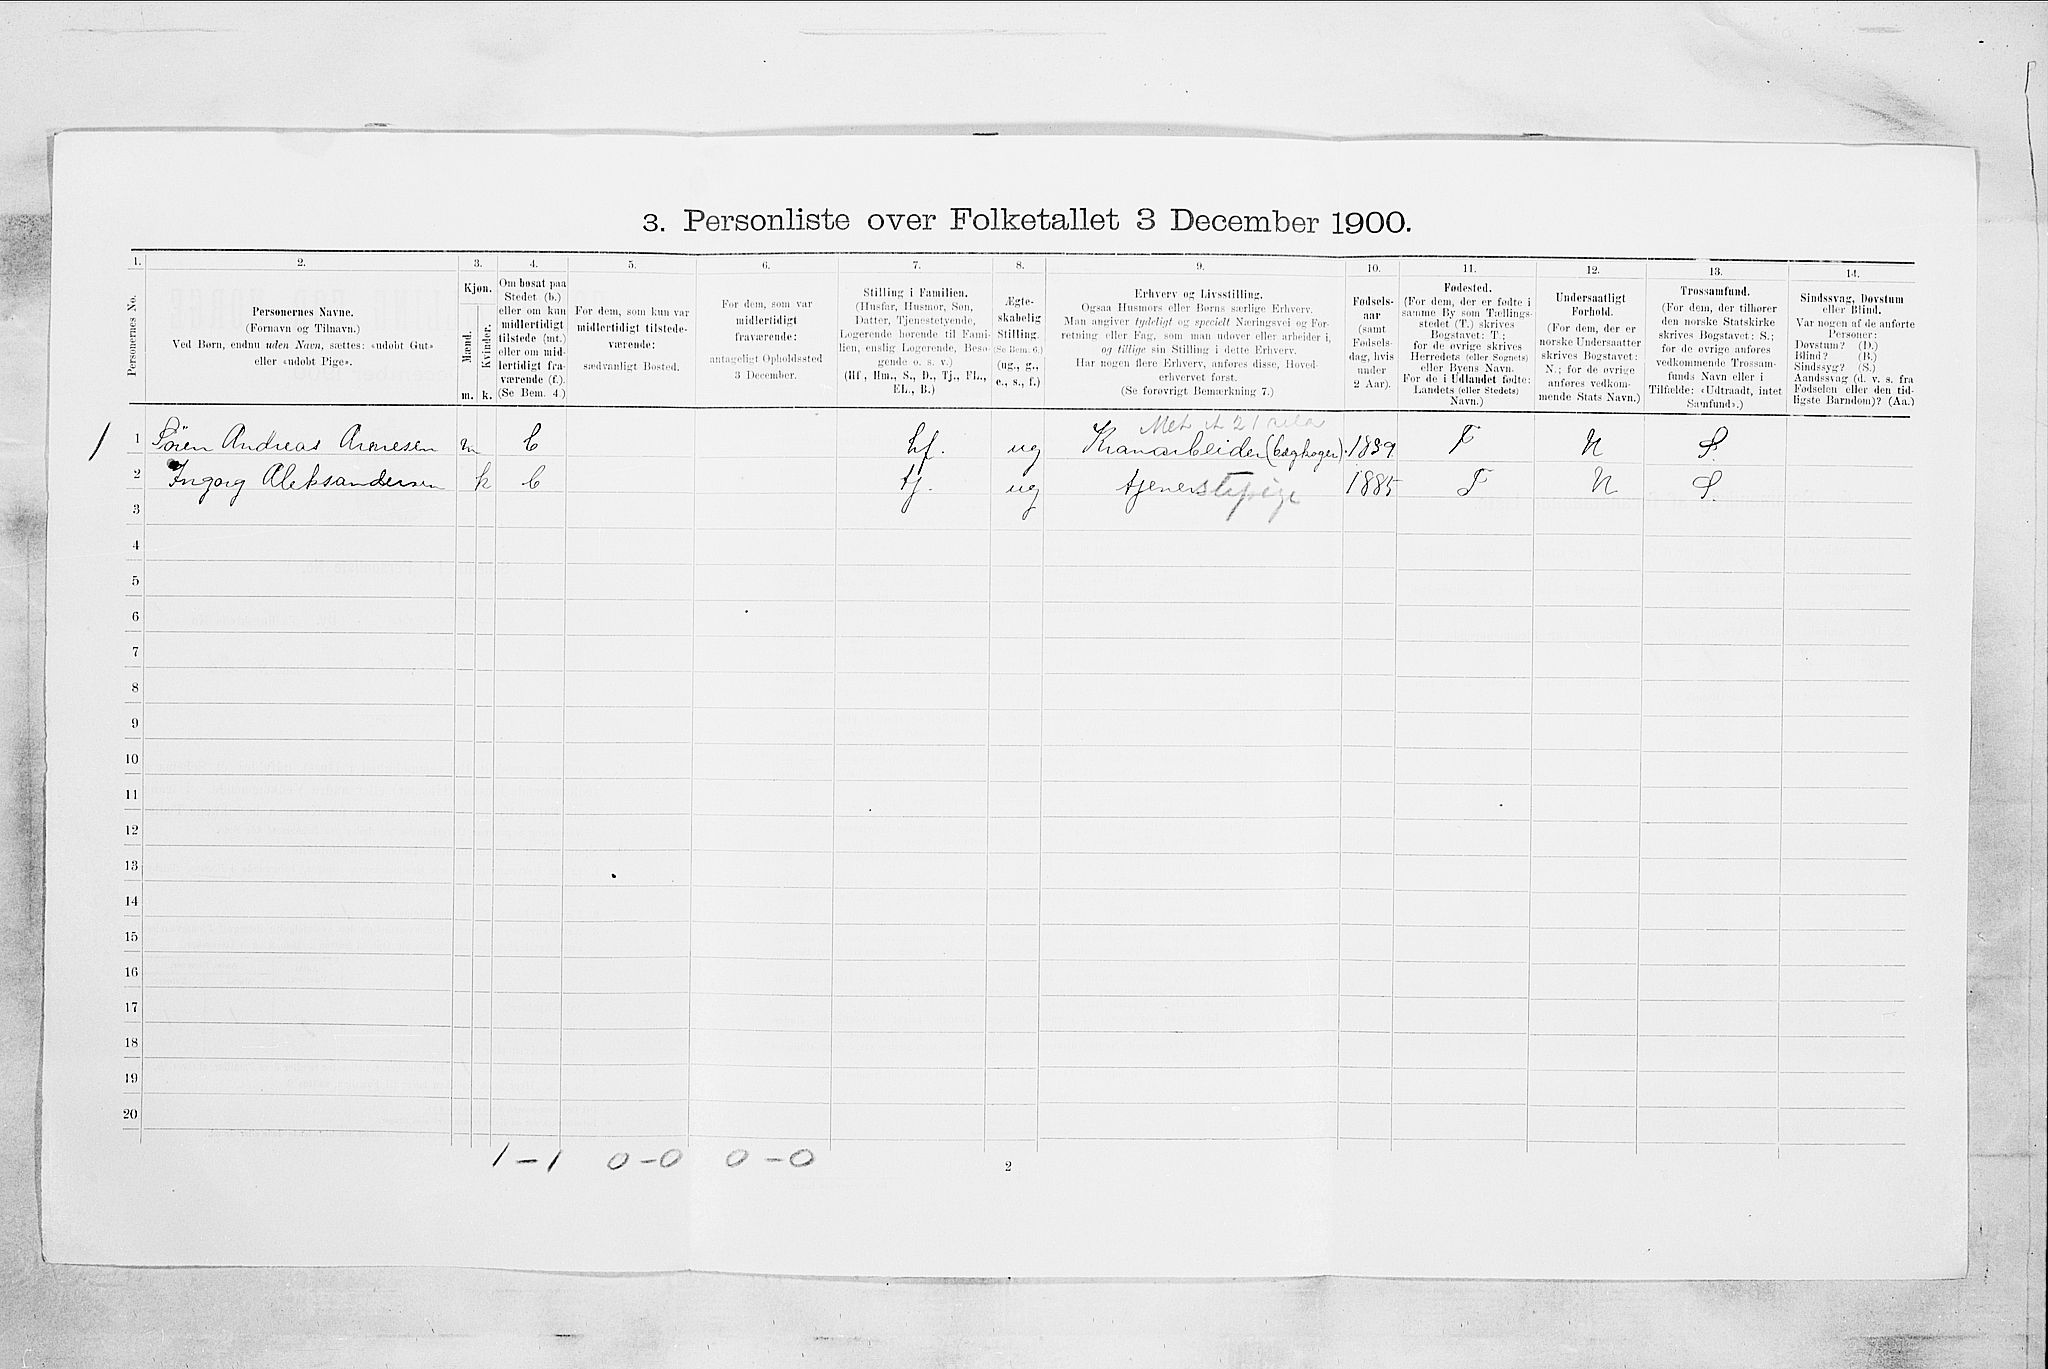 3. Personliste over Folketallet 3 December 1900.
1. 2. 3. 4. 5. 6. 7. 8. 9. 10. 11. 12. 13. 14.
Personernes No.
Personernes Navne.
(Fornavn og Tilnavn.)
Ved Børn, endnu uden Navn, sættes: «udøbt Gut»
eller «udøbt Pige».
Kjøn.
Mænd.
Kvinder.
m. k.
Om bosat paa
Stedet (b.)
eller om kun
midlertidigt
tilstede (mt.)
eller om mid-
lertidigt fra-
værende (f.).
(Se Bem. 4.)
For dem, som kun var
midlertidigt tilstede-
værende:
sædvanligt Bosted.
For dem, som var
midlertidigt
fraværende:
antageligt Opholdssted
3 December.
Stilling i Familien.
(Husfar, Husmor, Søn,
Datter, Tjenestetyende,
Logerende hørende til Fami-
lien, enslig Logerende, Besø-
gende o. s. v.)
(Hf., Hm., S., D., Tj., FL.,
EL., B.)
Ægte-
skabelig
Stilling.
(Se Bem. 6.)
(ug., g.,
e., s., f.)
Erhverv og Livsstilling.
Ogsaa Husmors eller Børns særlige Erhverv.
Man angiver tydeligt og specielt Næringsvei og For-
retning eller Fag, som man udøver eller arbeider i,
og tillige sin Stilling i dette Erhverv.
Har nogen flere Erhverv, anføres disse, Hoved-
erhvervet først.
(Se forøvrigt Bemærkning 7.)
Fødsels-
aar
(samt
Fødsels-
dag, hvis
under
2 Aar).
Fødested.
(For dem, der er fødte i
samme By som Tællings-
stedet (T.) skrives
Bogstavet: T ;
for de øvrige skrives
Herredets (eller Sognets)
eller Byens Navn.
For de i Udlandet fødte:
Landets (eller Stedets)
Navn.)
Undersaatligt
Forhold.
(For dem, der er
norske Undersaatter
skrives Bogstavet:
N.; for de øvrige
anføres vedkom-
mende Stats Navn.)
Trossamfund.
(For dem, der tilhører
den norske Statskirke
skrives Bogstavet: S.;
for de øvrige anføres
vedkommende Trossam-
funds Navn eller i
Tilfælde: «Udtraadt, intet
Samfund».)
Sindssvag, Døvstum
eller Blind.
Var nogen af de anførte
Personer:
Døvstum? (D.)
Blind? (B.)
Sindssyg? (S.)
Aandssvag (d. v. s. fra
Fødselen eller den tid-
ligste Barndom)? (Aa.)
1 1 Sören Andreas Arnesen m b hf. ug Kranarbeider (bægkoger). 1839 T N S.
2 Ingorg Aleksandersen k b tj. ug tjenerstepige 1885 T N S.
3
4
5
6
7
8
9
10
11
12
13
14
15
16
17
18
19
20
1-1 0-0 0-0
2